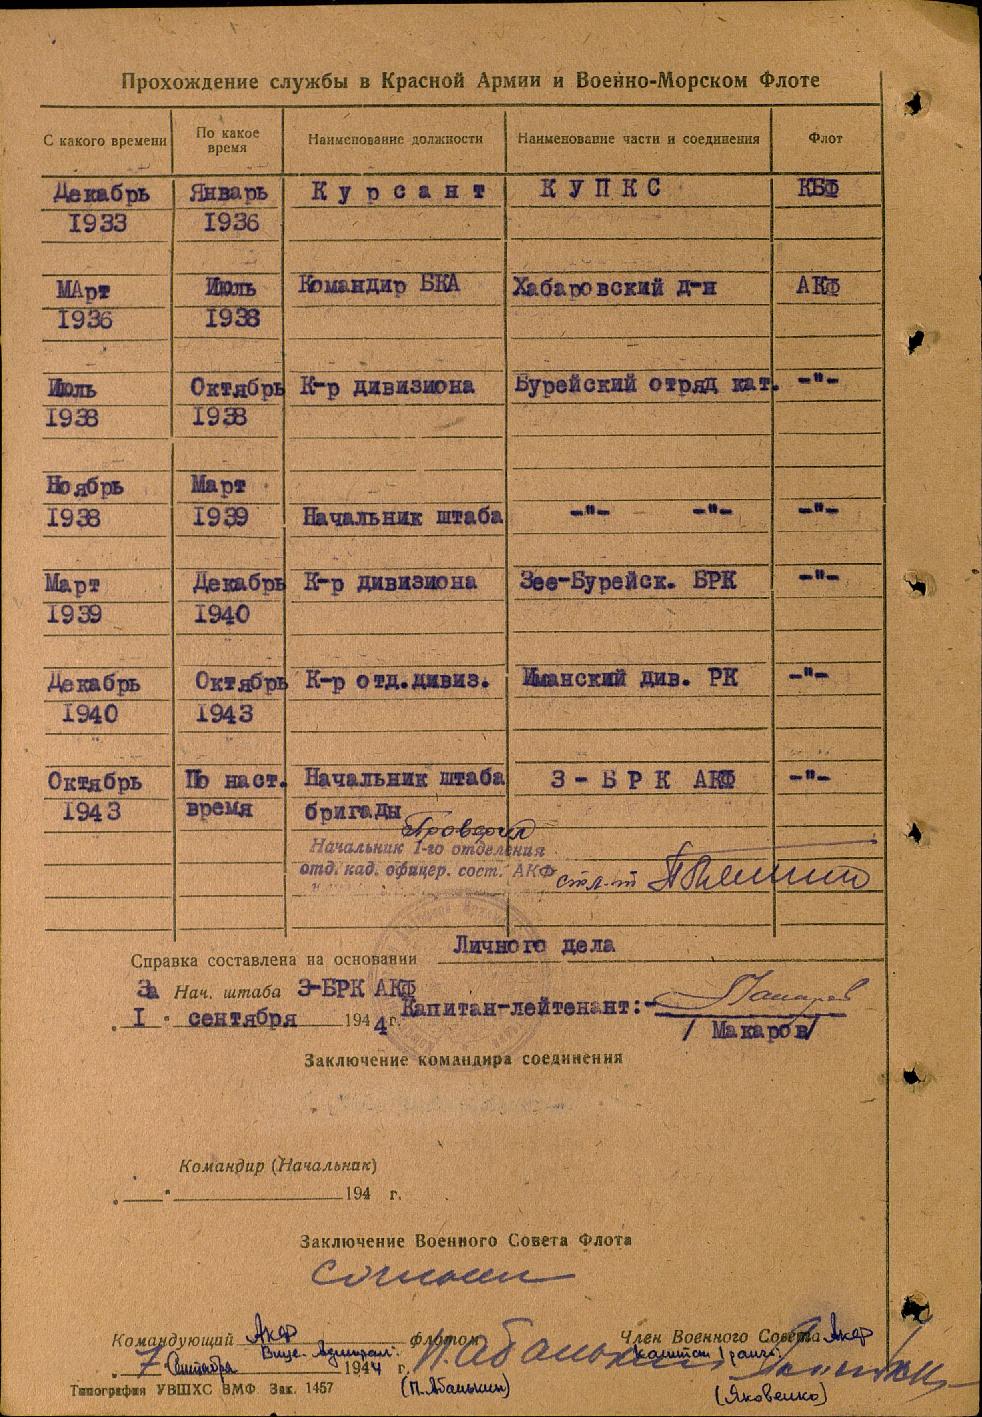 Прохождение службы в Красной Армии и Военно-Морском Флоте
С какого времени По какое время Наименование должности Наименование части и соединения Флот
Декабрь Январь Курсант КУПКС КБФ
1933 1936
МАрт Июль Командир БКА Хабаровский д-н АКФ
1936 1938
Июль Октябрь К-р дивизиона Бурейский отряд кат. -"-
1938 1938
Ноябрь Март
1938 1939 Начальник штаба -"- -"- -"-
Март Декабрь К-р дивизиона Зее-Бурейск. БРК -"-
1939 1940
Декабрь Октябрь К-р отд.дивиз. Иманский див. РК -"-
1940 1943
Октябрь По наст. Начальник штаба 3-БРК АКФ -"-
1943 время бригады
Проверил
Начальник 1-го отделения
отд. кад. офицер. сост. АКФ ст. л-т
Справка составлена на основании Личного дела
За Нач. штаба 3-БРК АКФ
Капитан-лейтенант:- Макаров
„ I " сентября 1944 г. / Макаров/
Заключение командира соединения
Командир (Начальник)
„ " 194 г.
Заключение Военного Совета Флота
Согласен
Командующий АКФ флотом Член Военного Совета АКФ
Вице-Адмирал капитан 1 ранга
7 Сентября 1944 г. П. Абанькин
(П. Абанькин) (Яковенко)
Типография УВШХС ВМФ Зак. 1457